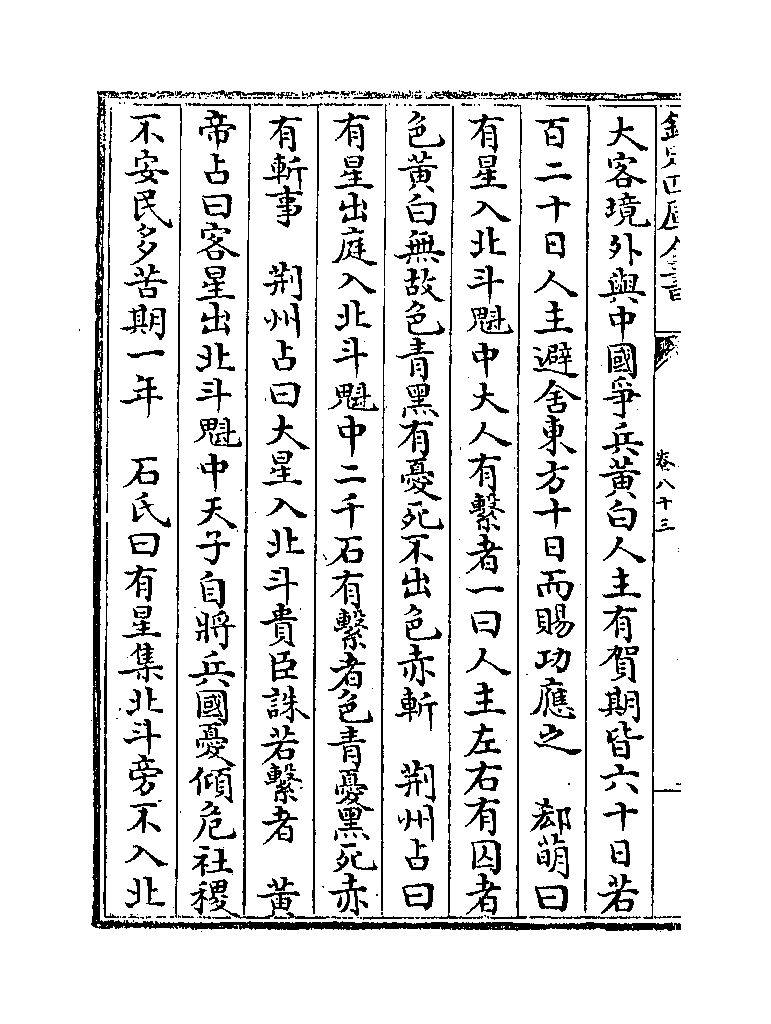 欽定四庫全書
卷八十三
大客境外與中國爭兵黃白人主有賀期皆六十日若
百二十日人主避舍東方十日而賜功應之　郄萌曰
有星入北斗魁中大人有繫者一曰人主左右有囚者
色黃白無故色青黑有憂死不出色赤斬　荆州占曰
有星出庭入北斗魁中二千石有繫者色青憂黑死赤
有斬事　荆州占曰大星入北斗貴臣誅若繫者　黃
帝占曰客星出北斗魁中天子自將兵國憂傾危社稷
不安民多苦期一年　石氏曰有星集北斗旁不入北